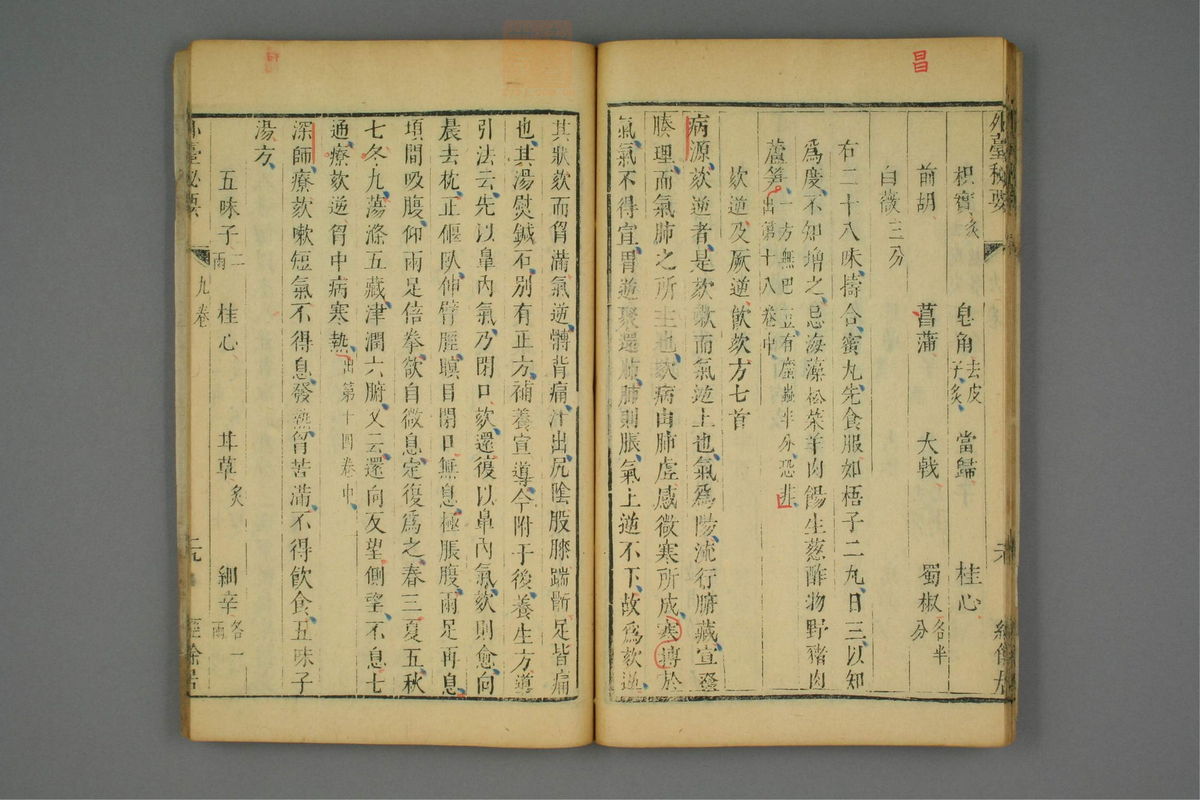 昌
外臺秘要
枳實炙 皂角去皮子炙 當歸 桂心
前胡 菖蒲 大戟 蜀椒各半分
白薇三分
右二十八味擣合蜜丸先食服如梧子二丸日三以知
爲度不知增之忌海藻菘菜羊肉餳生葱酢物野豬肉
蘆笋一方無巴豆有䗪蟲半分恐非出第十八卷中
欬逆及厥逆飲欬方七首
病源欬逆者是欬嗽而氣逆上也氣爲陽流行腑藏宣發
腠理而氣肺之所主也欬病由肺虛感微寒所成寒搏於
氣氣不得宣胃逆聚還肺肺則脹氣上逆不下故爲欬逆
其狀欬而胷滿氣逆髆背痛汗出尻陰股膝踹䯒足皆痛
也其湯熨鍼石別有正方補養宣導今附于後養生方導
引法云先以鼻內氣乃閉口欬還復以鼻內氣欬則愈向
晨去枕正偃臥伸臂脛瞑目閉口無息極脹腹兩足再息
頃間吸腹仰兩足倍拳欲自微息定復爲之春三夏五秋
七冬九蕩滌五藏津潤六腑又云還向反望側望不息七
通療欬逆胷中病寒熱出第十四卷中
深師療欬嗽短氣不得息發熱胷苦滿不得飲食五味子
湯方
五味子二兩 桂心 甘草炙 細辛各一兩
外臺秘要 九卷 經餘居